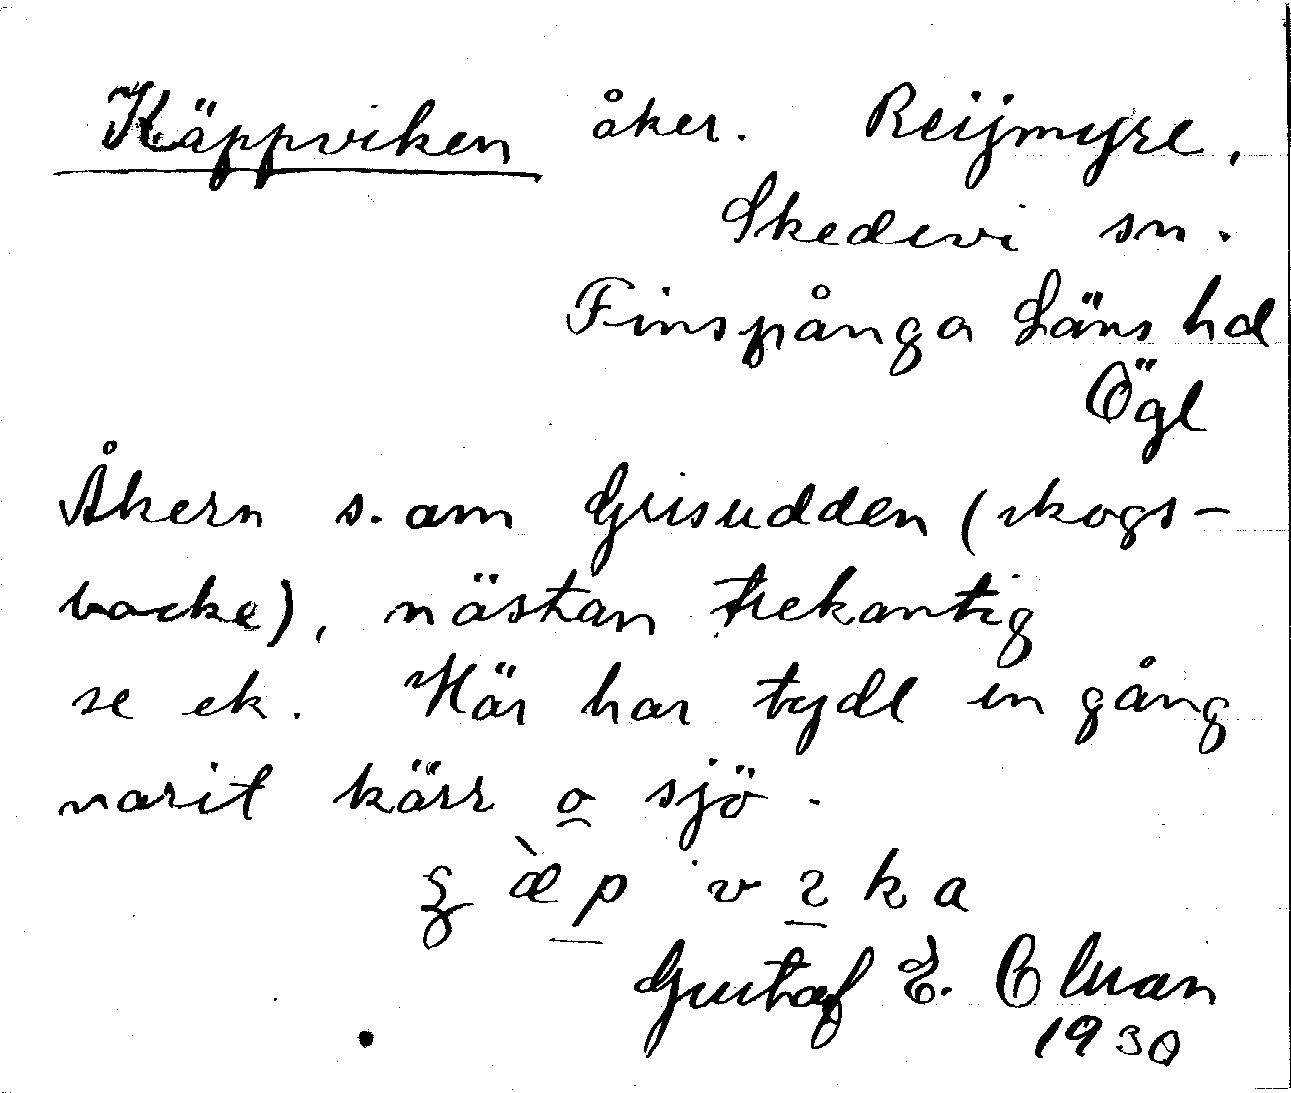 Käppviken åker. Reijmyre,
Skedevi sn.
Finspånga Läns hd
Ögl
Åkern s. om Grisudden (skogs-
backe), nästan trekantig
se ek. Här har tydl en gång
varit kärr o sjö.
Gustaf E. Olsson
1930